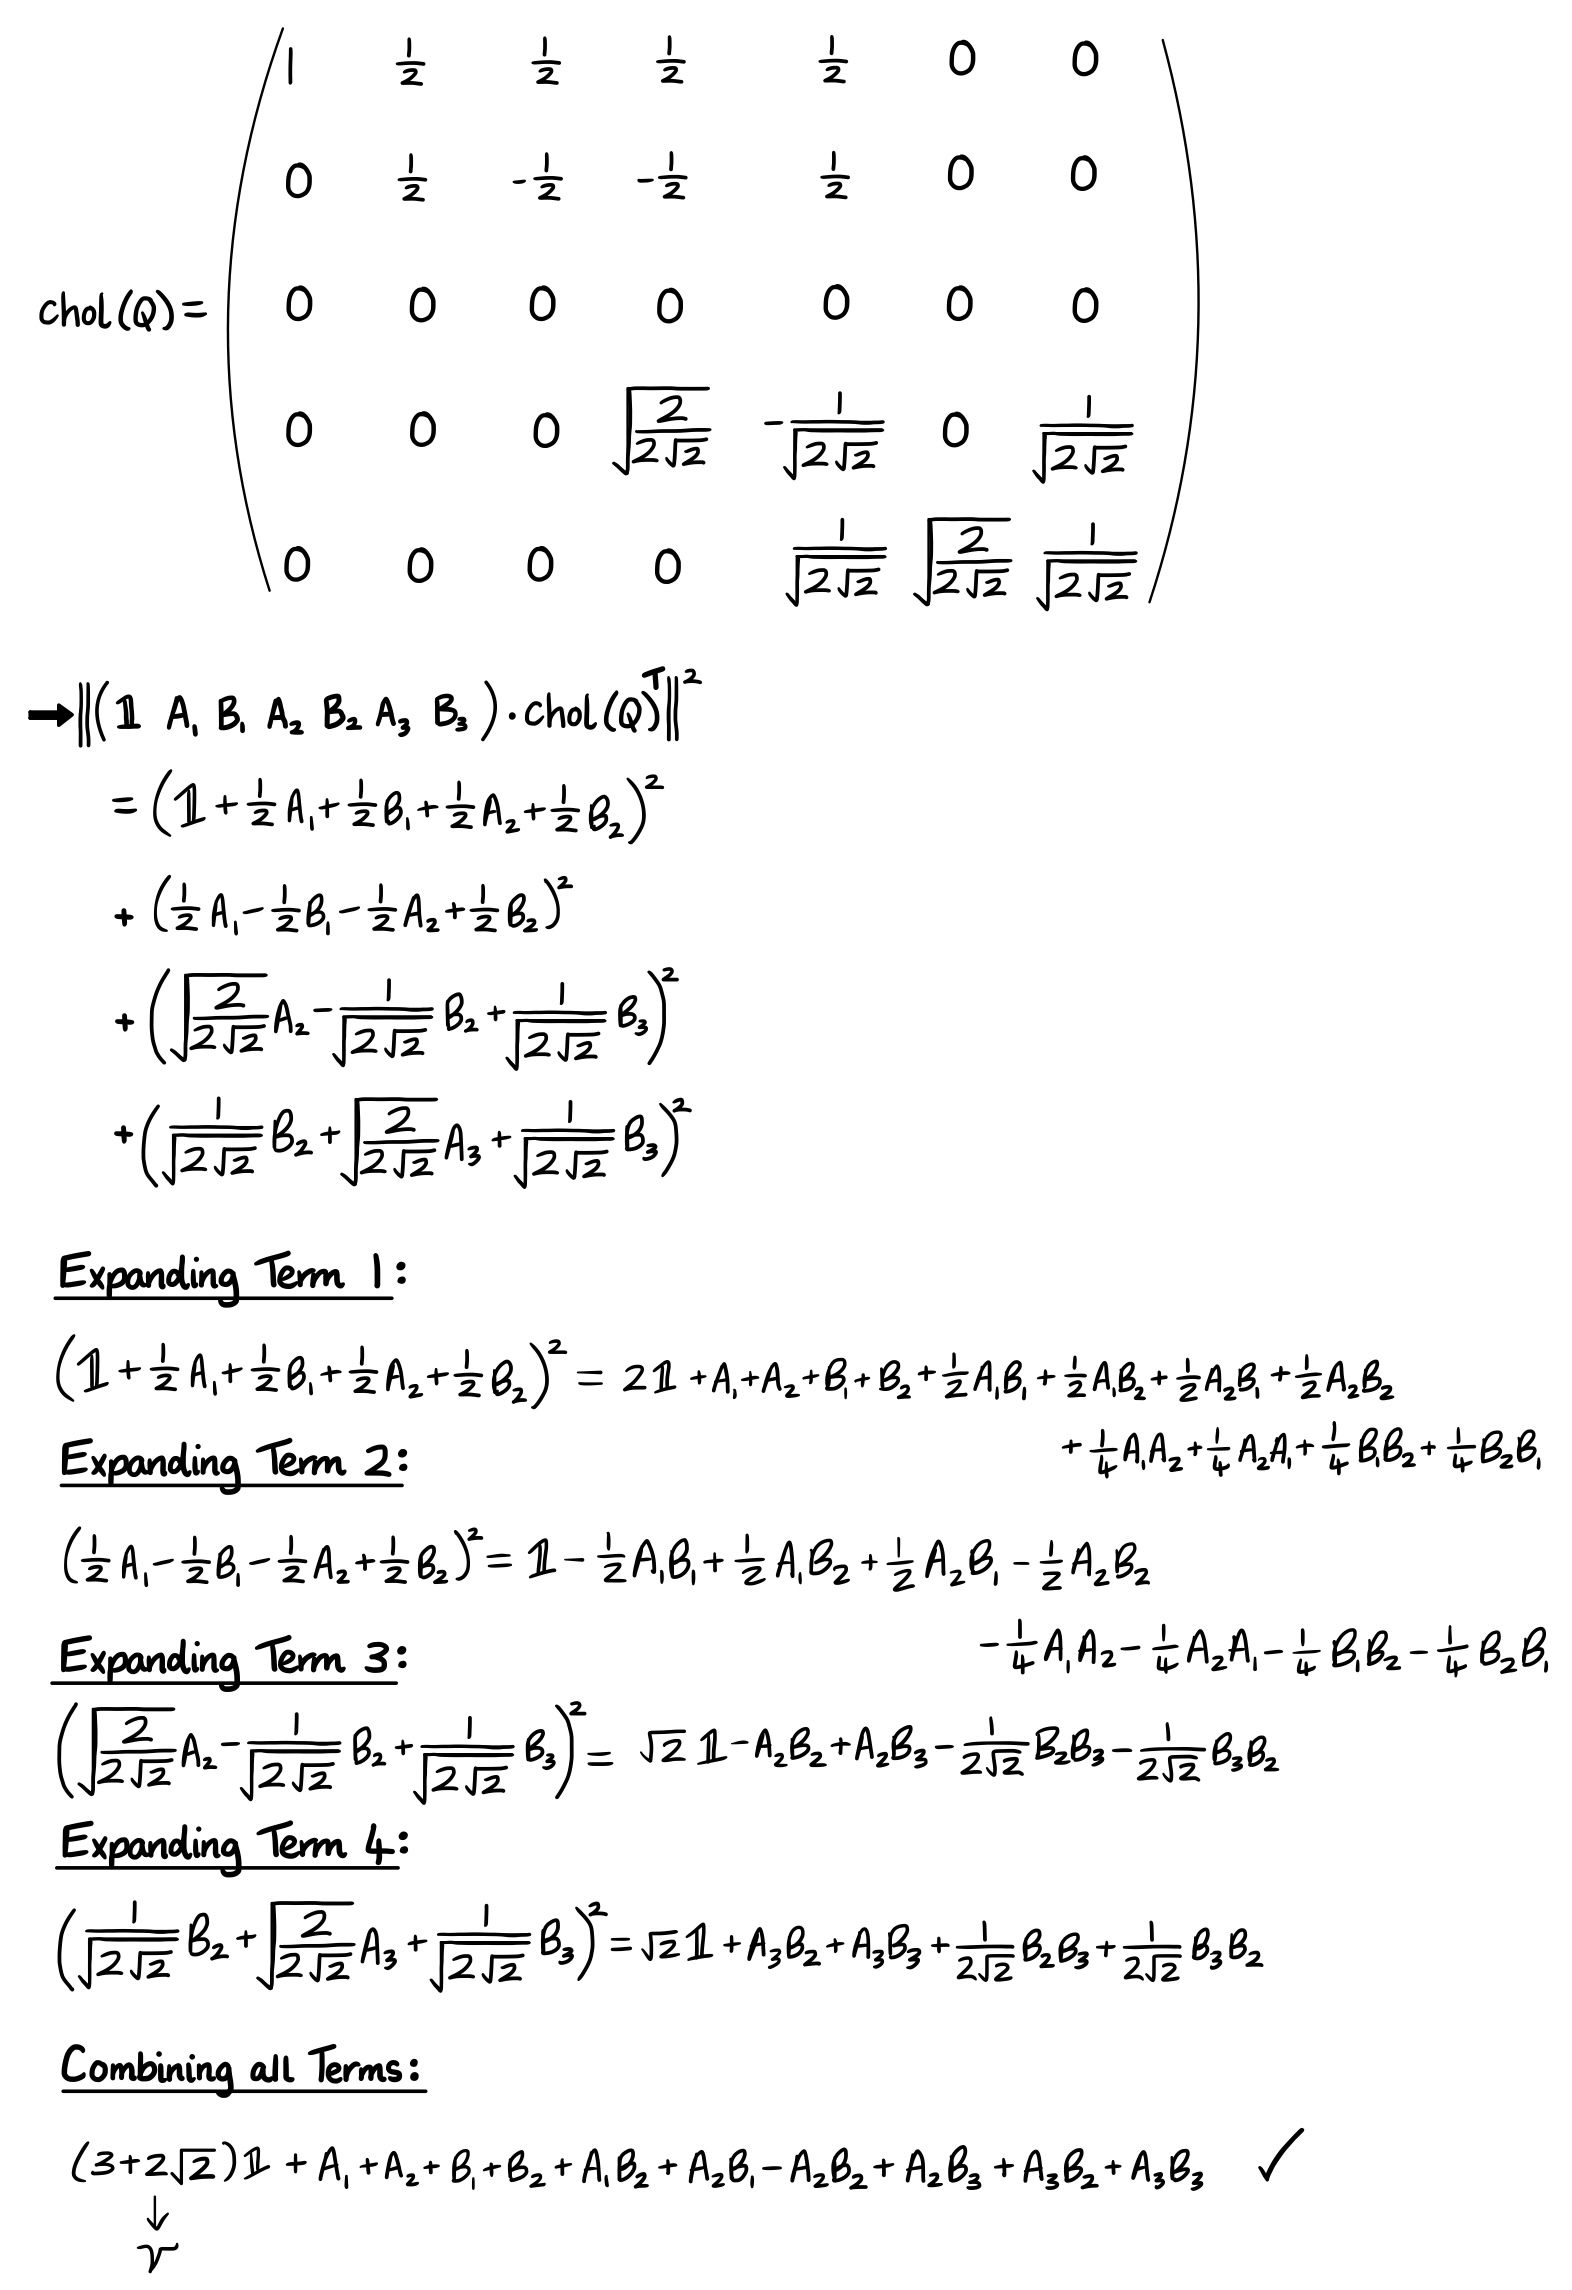 1 1/2 1/2 1/2 1/2 0 0
0 1/2 -1/2 -1/2 1/2 0 0
chol(Q) = 0 0 0 0 0 0 0
0 0 0 √(2/(2√2)) -1/√(2√2) 0 1/√(2√2)
0 0 0 0 1/√(2√2) √(2/(2√2)) 1/√(2√2)
➡ ‖(𝟙 A₁ B₁ A₂ B₂ A₃ B₃)·chol(Q)ᵀ‖²
= (𝟙 + 1/2 A₁ + 1/2 B₁ + 1/2 A₂ + 1/2 B₂)²
+ (1/2 A₁ - 1/2 B₁ - 1/2 A₂ + 1/2 B₂)²
+ (√(2/(2√2)) A₂ - 1/√(2√2) B₂ + 1/√(2√2) B₃)²
+ (1/√(2√2) B₂ + √(2/(2√2)) A₃ + 1/√(2√2) B₃)²
Expanding Term 1:
(𝟙 + 1/2 A₁ + 1/2 B₁ + 1/2 A₂ + 1/2 B₂)² = 2𝟙 + A₁ + A₂ + B₁ + B₂ + 1/2 A₁B₁ + 1/2 A₁B₂ + 1/2 A₂B₁ + 1/2 A₂B₂
+ 1/4 A₁A₂ + 1/4 A₂A₁ + 1/4 B₁B₂ + 1/4 B₂B₁
Expanding Term 2:
(1/2 A₁ - 1/2 B₁ - 1/2 A₂ + 1/2 B₂)² = 𝟙 - 1/2 A₁B₁ + 1/2 A₁B₂ + 1/2 A₂B₁ - 1/2 A₂B₂
- 1/4 A₁A₂ - 1/4 A₂A₁ - 1/4 B₁B₂ - 1/4 B₂B₁
Expanding Term 3:
(√(2/(2√2)) A₂ - 1/√(2√2) B₂ + 1/√(2√2) B₃)² = √2 𝟙 - A₂B₂ + A₂B₃ - 1/(2√2) B₂B₃ - 1/(2√2) B₃B₂
Expanding Term 4:
(1/√(2√2) B₂ + √(2/(2√2)) A₃ + 1/√(2√2) B₃)² = √2 𝟙 + A₃B₂ + A₃B₃ + 1/(2√2) B₂B₃ + 1/(2√2) B₃B₂
Combining all Terms:
(3+2√2)𝟙 + A₁ + A₂ + B₁ + B₂ + A₁B₂ + A₂B₁ - A₂B₂ + A₂B₃ + A₃B₂ + A₃B₃ ✓
↓
γ